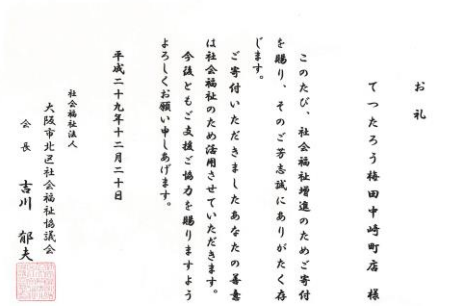 お礼
てつたろう梅田中崎町店 様
このたび、社会福祉増進のためご寄付
を賜り、そのご芳志誠にありがたく存
じます。
ご寄付いただきましたあなたの善意
は社会福祉のため活用させていただきます。
今後ともご支援ご協力を賜りますよう
よろしくお願い申しあげます。
平成二十九年十二月二十日
社会福祉法人
大阪市北区社会福祉協議会
会長 吉川 郁夫